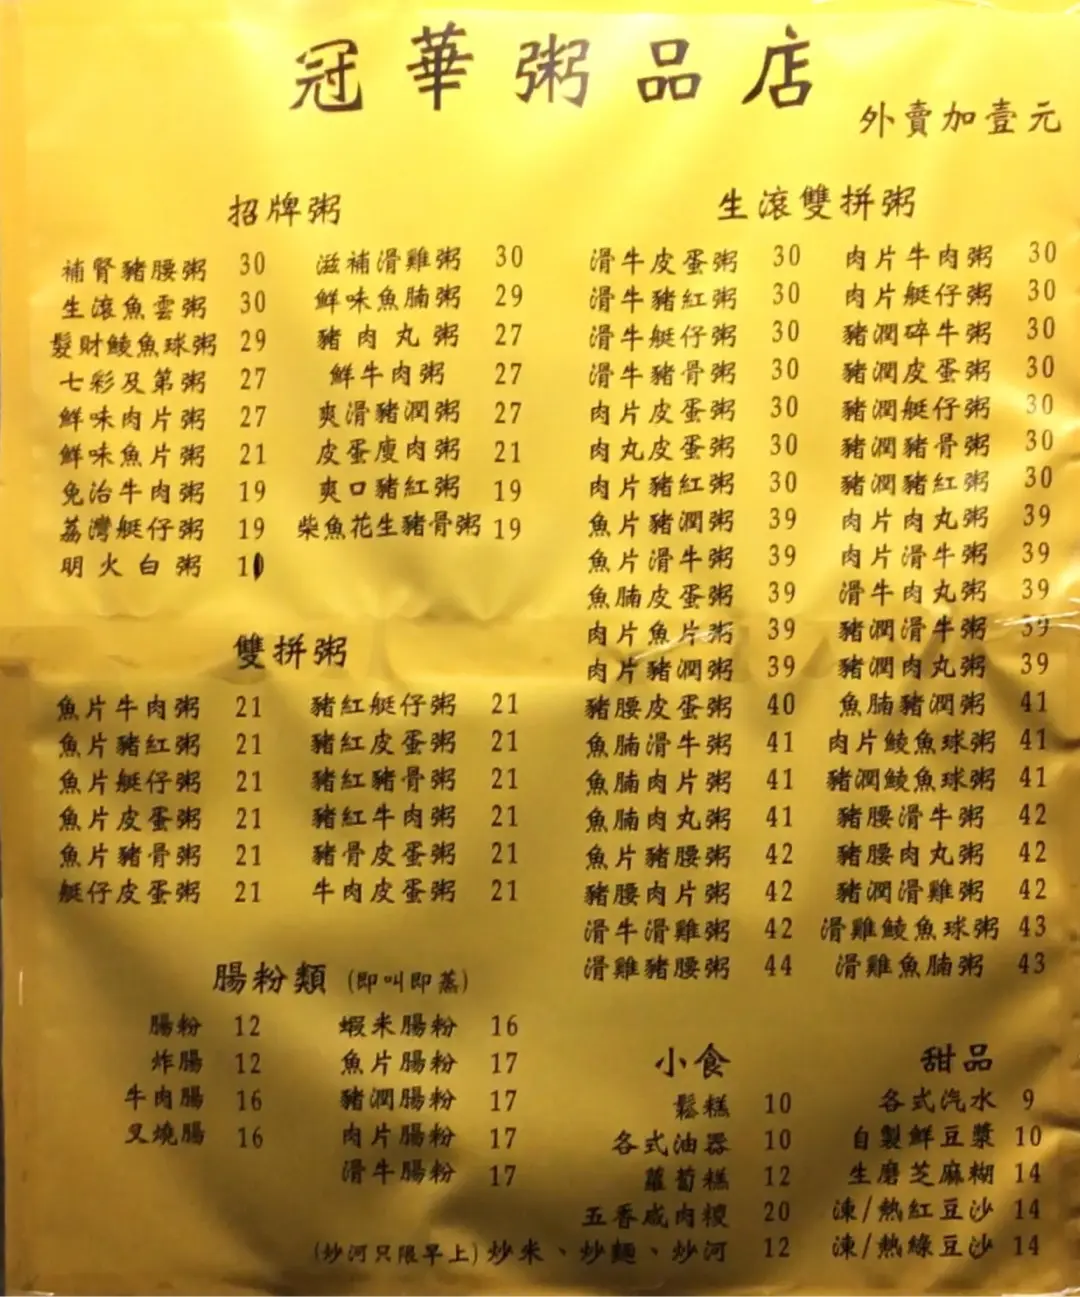 冠華粥品店
外賣加壹元
招牌粥
補腎豬腰粥 30 滋補滑雞粥 30
生滾魚雲粥 30 鮮味魚腩粥 29
髮財鯪魚球粥 29 豬肉丸粥 27
七彩及第粥 27 鮮牛肉粥 27
鮮味肉片粥 27 爽滑豬潤粥 27
鮮味魚片粥 21 皮蛋瘦肉粥 21
免治牛肉粥 19 爽口豬紅粥 19
荔灣艇仔粥 19 柴魚花生豬骨粥 19
明火白粥
雙拼粥
魚片牛肉粥 21 豬紅艇仔粥 21
魚片豬紅粥 21 豬紅皮蛋粥 21
魚片艇仔粥 21 豬紅豬骨粥 21
魚片皮蛋粥 21 豬紅牛肉粥 21
魚片豬骨粥 21 豬骨皮蛋粥 21
艇仔皮蛋粥 21 牛肉皮蛋粥 21
腸粉類 (即叫即蒸)
腸粉 12 蝦米腸粉 16
炸腸 12 魚片腸粉 17
牛肉腸 16 豬潤腸粉 17
叉燒腸 16 肉片腸粉 17
滑牛腸粉 17
生滾雙拼粥
滑牛皮蛋粥 30 肉片牛肉粥 30
滑牛豬紅粥 30 肉片艇仔粥 30
滑牛艇仔粥 30 豬潤碎牛粥 30
滑牛豬骨粥 30 豬潤皮蛋粥 30
肉片皮蛋粥 30 豬潤艇仔粥 30
肉丸皮蛋粥 30 豬潤豬骨粥 30
肉片豬紅粥 30 豬潤豬紅粥 30
魚片豬潤粥 39 肉片肉丸粥 39
魚片滑牛粥 39 肉片滑牛粥 39
魚腩皮蛋粥 39 滑牛肉丸粥 39
肉片魚片粥 39 豬潤滑牛粥 39
肉片豬潤粥 39 豬潤肉丸粥 39
豬腰皮蛋粥 40 魚腩豬潤粥 41
魚腩滑牛粥 41 肉片鯪魚球粥 41
魚腩肉片粥 41 豬潤鯪魚球粥 41
魚腩肉丸粥 41 豬腰滑牛粥 42
魚片豬腰粥 42 豬腰肉丸粥 42
豬腰肉片粥 42 豬潤滑雞粥 42
滑牛滑雞粥 42 滑雞鯪魚球粥 43
滑雞豬腰粥 44 滑雞魚腩粥 43
小食
鬆糕 10
各式油器 10
蘿蔔糕 12
五香咸肉粳 20
(炒河只限早上) 炒米、炒麵、炒河 12
甜品
各式汽水 9
自製鮮豆漿 10
生磨芝麻糊 14
凍/熱紅豆沙 14
凍/熱綠豆沙 14